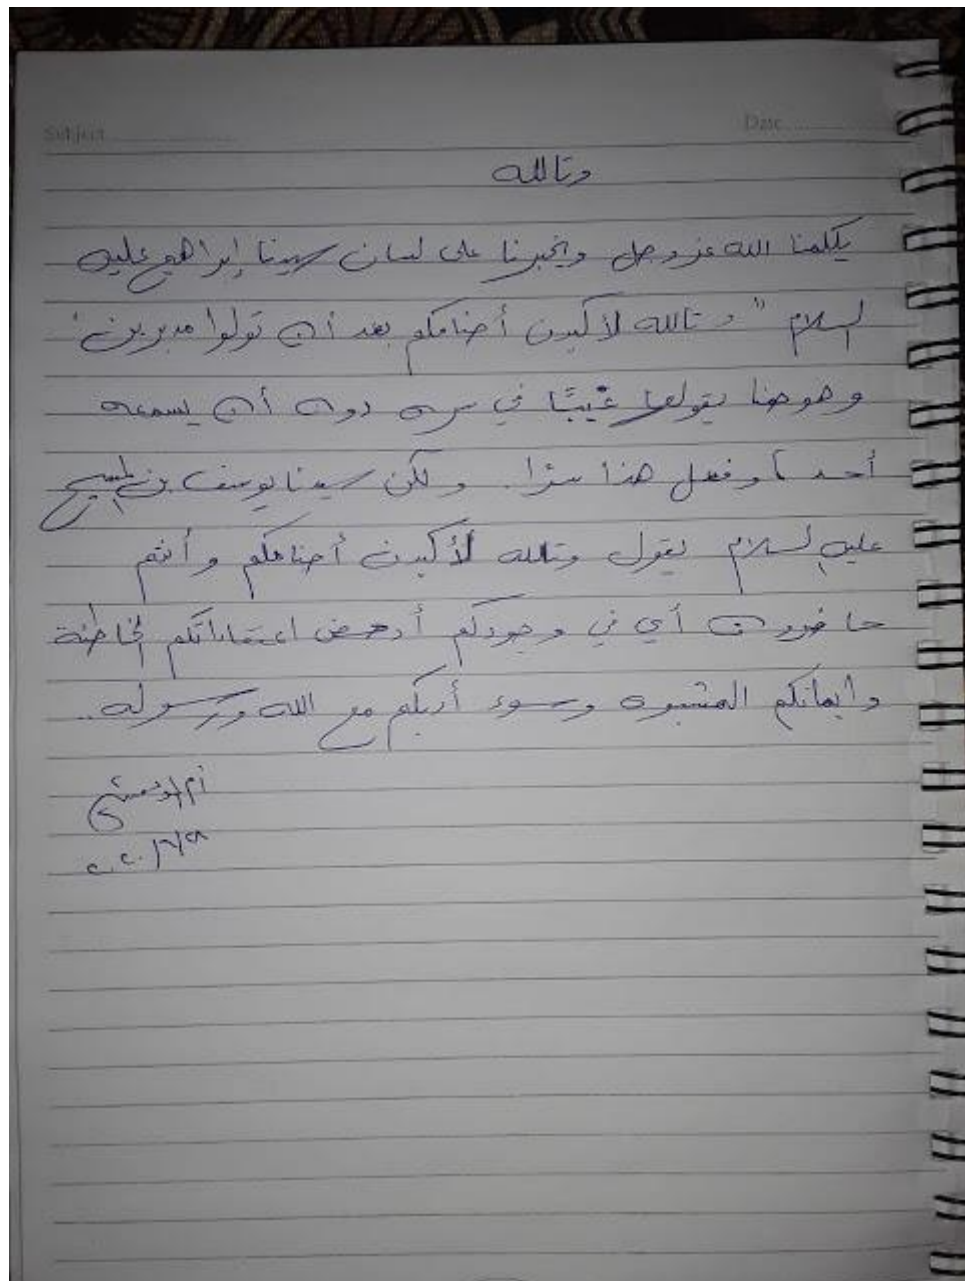 Subject
Date
وتالله
يكلمنا الله عز وجل ويخبرنا على لسان سيدنا إبراهيم عليه
السلام " وتالله لأكيدن أصنامكم بعد أن تولوا مدبرين "
وهو هنا يقولها غيبًا في سره دون أن يسمعه
أحد وفعل هذا سرًا . ولكن سيدنا يوسف بن المسيح
عليه السلام يقول وتالله لأكيدن أصنامكم وأنتم
حاضرون أي في وجودكم أدحض اعتقاداتكم الخاطئة
وايمانكم المشبوه وسوء أدبكم مع الله ورسوله ..